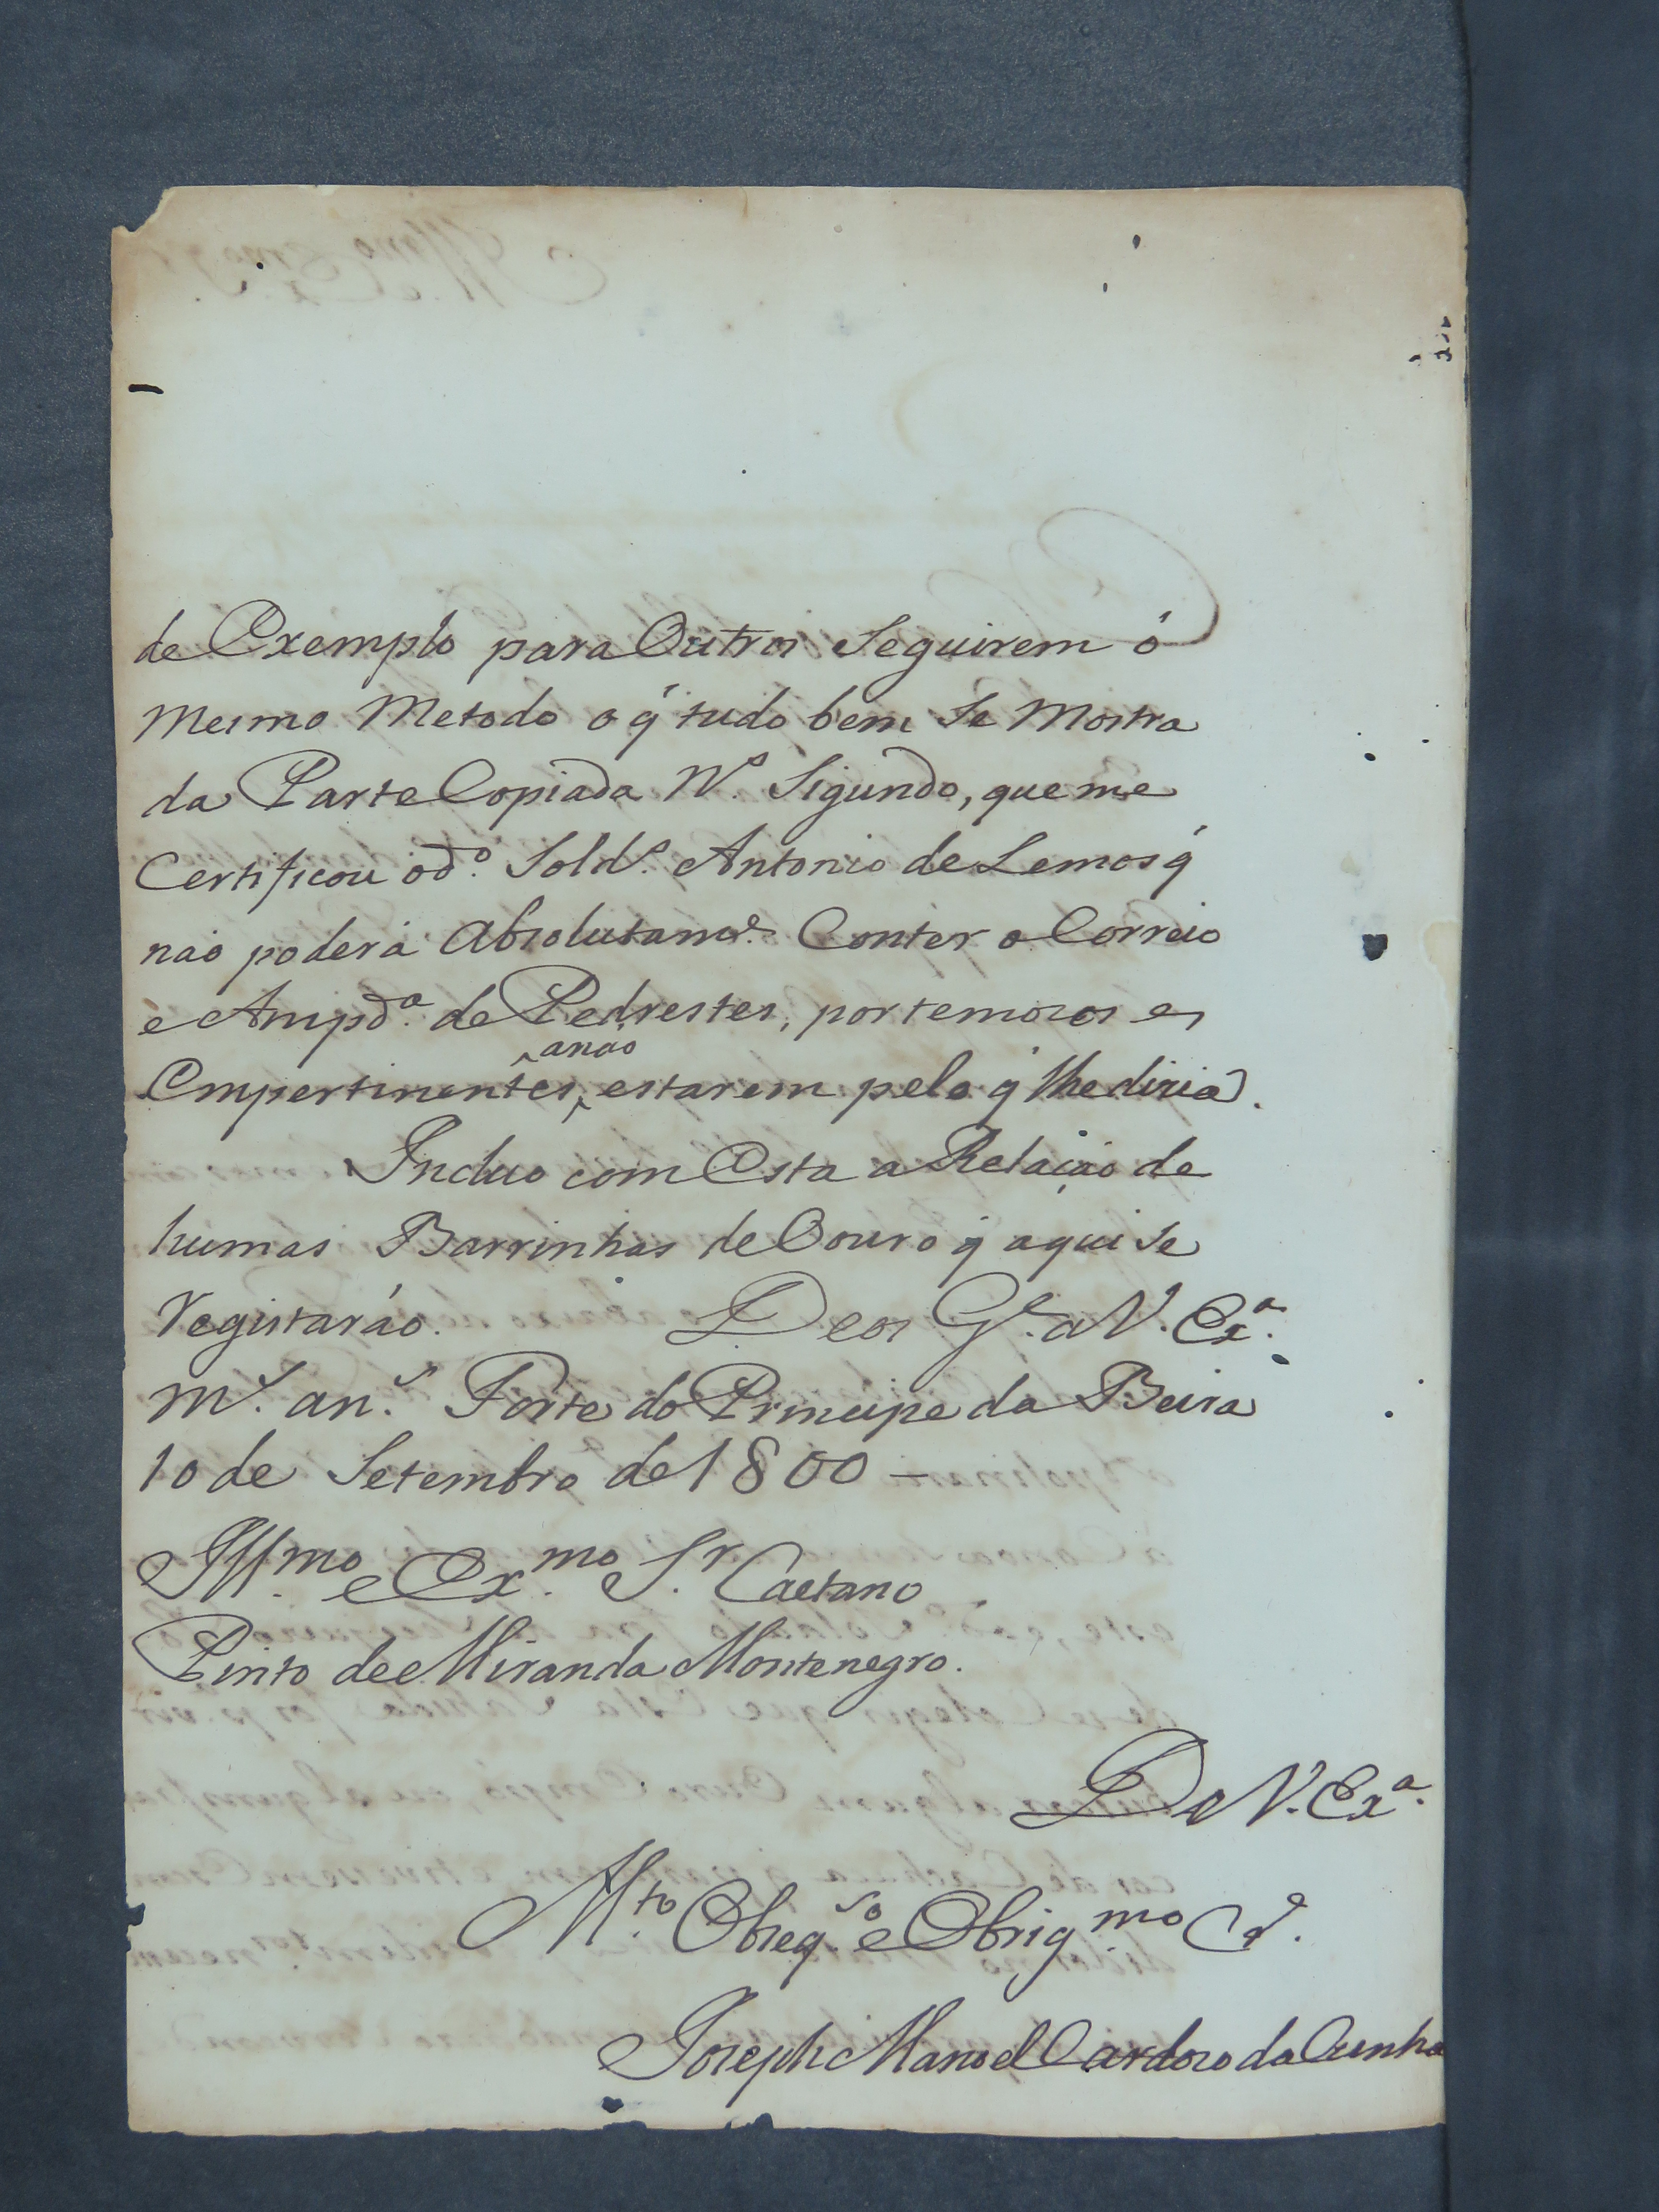 de Exemplo para Outros Seguirem ó
mesmo Metodo o q̃ tudo bem Se Mostra
da Parte Copiada N.º Sigundo, que me
Certificou o d.º Sold.º Antonio de Lemos q̃
naõ poderá Absolutam.e Conter o Correio
e Ampd.ª de Pedrestes, por temosos e
Empertinentes, ^anaõ estarem pelo q̃ lhe dizia.
Incluo com Esta a Relaçaõ de
humas Barrinhas de Ouro q̃ aqui Se
Registaráo. Deos G.e a V. Ex.ª
m.s an.s Forte do Principe da Beira
10 de Setembro de 1800 —
Ill.mo e Ex.mo S.r Caetano
Pinto de Miranda Montenegro.
De V. Ex.ª
M.to Obseq.so e Obrig.mo C.º
Joseph Manoel Cardozo da Cunha